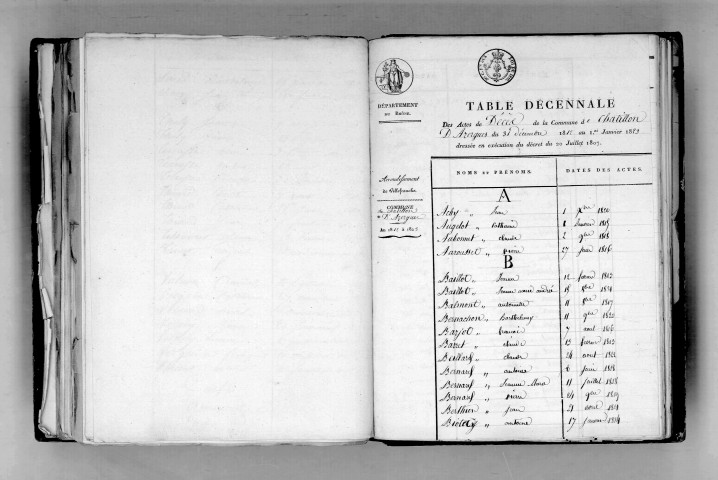 DÉPARTEMENT
DU RHÔNE.
Arrondissement
de Villefranche.
COMMUNE
de Chatillon
D'Azergues
TABLE DÉCENNALE
Des Actes de Décès de la Commune de Chatillon
D'Azergues du 31 décembre 1812 au 1.er Janvier 1823
dressée en exécution du décret du 20 Juillet 1807.
NOMS ET PRÉNOMS. DATES DES ACTES.
A
Achy " Jean 1 1820
Augelot " Catherine 1 Janvier 1815
Aubonnet " claude 2 9bre 1818
Aarousset " pierre 27 1816
B
Baillot " 12 février 1813
Baillot " Jeanne marie andré 18 1814
Balmont " antoinette 11 1817
Bernachon " Barthelemy 11 9bre 1820
Barjot " francois 7 aout 1816
Barret " claude 13 février 1813
Boillard " claude 24 aout 1822
Bernard " antoine 6 juin 1818
Bernard " Jeanne Marie 11 juillet 1818
Bernard " pierre 24 9bre 1819
Berthier " jean 21 aout 1821
antoine 17 janvier 1814